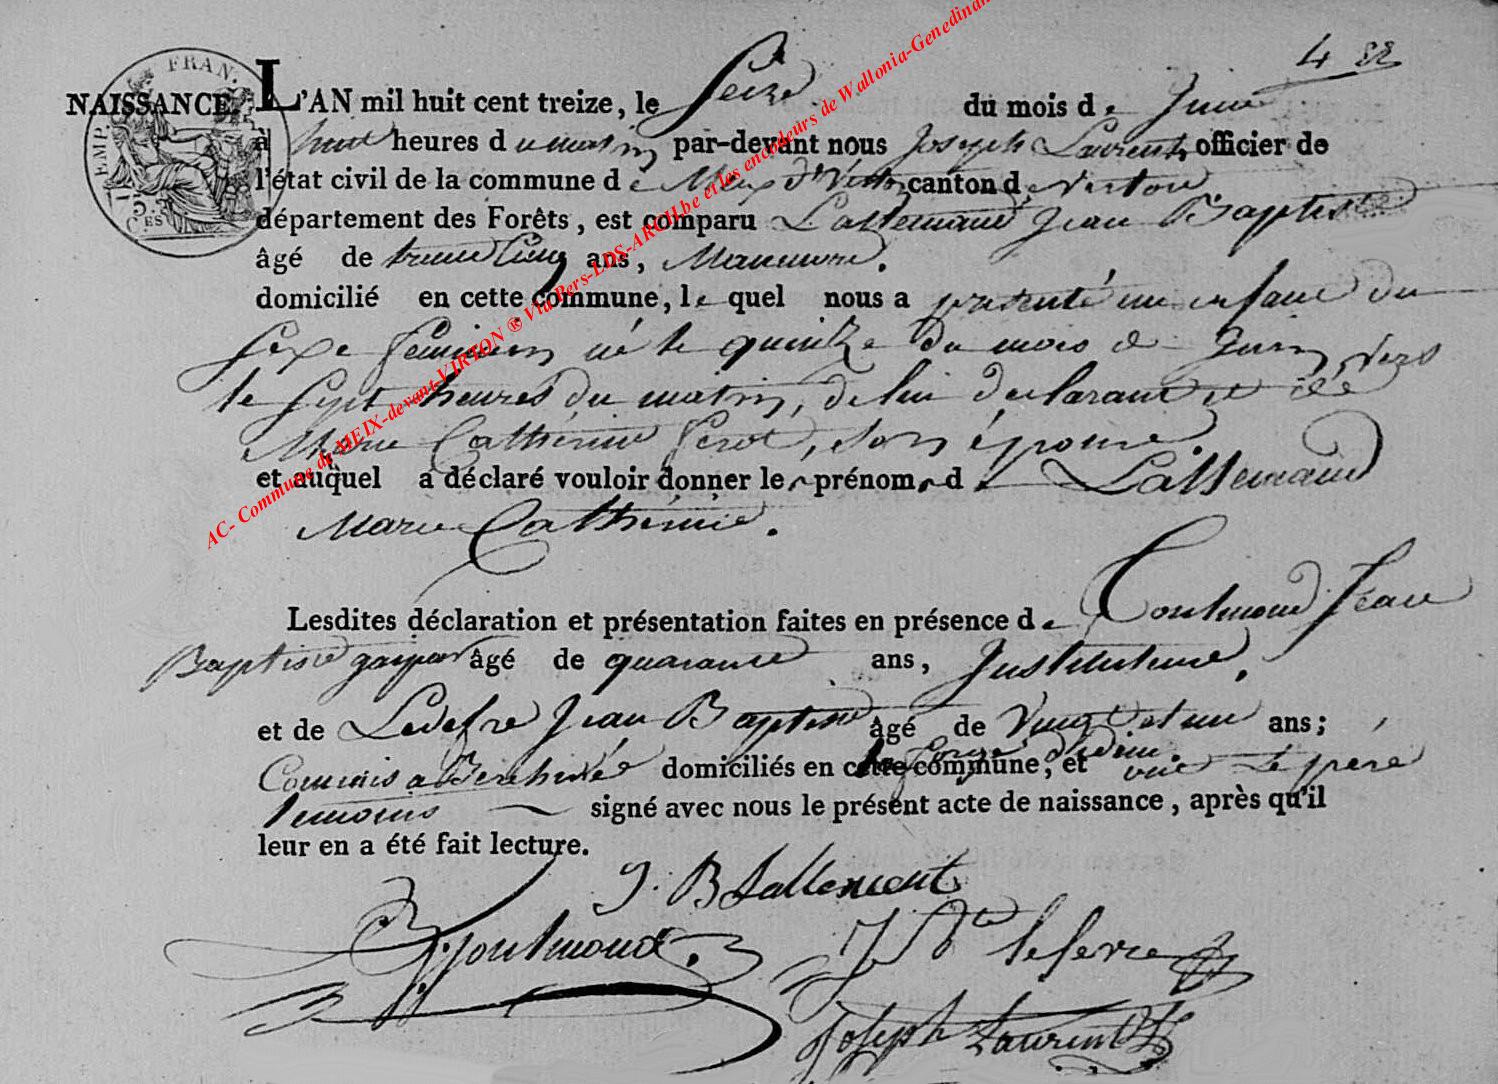 4 82
FRAN.
EMP.
NAISSANCE. L'AN mil huit cent treize, le Seize du mois de Juin
à huit heures du matin par-devant nous Joseph Laurent officier de
l'état civil de la commune de Meix dt Virton canton de Virton
département des Forêts, est comparu Lallemand Jean Baptiste
âgé de trente Cinq ans, Manœuvre.
domicilié en cette commune, le quel nous a présenté un enfant du
Sexe feminin né le quinze du mois de Juin, vers
le Sept heures du matin, de lui declarant et de
Marie Catherine Gerot, son épouse.
et auquel a déclaré vouloir donner les prénoms de Lallemand
Marie Catherine.
Lesdites déclaration et présentation faites en présence de Goulmond Jean
Baptiste gaspar âgé de quarante ans, Instituteur.
et de Ledefve Jean Baptiste âgé de Vingt et un ans;
Commis a Berchivée domiciliés en cette commune, et ont Le père
la forge
temoins signé avec nous le présent acte de naissance, après qu'il
leur en a été fait lecture.
J. B Lallemant
Goulmond.
J Bte lefevre
Joseph Laurent
AC- Commune de MEIX-devant-VIRTON ® Via Pers-LDS-ARCH.be et les encodeurs de Wallonia-Genedinan